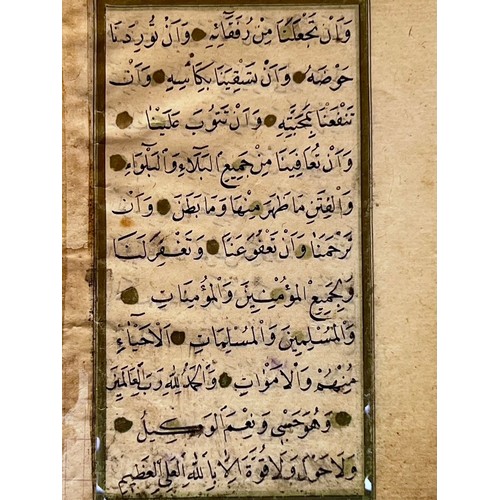 وَاَنْ تَجْعَلَنَا مِنْ رُفَقَآئِهِ وَاَنْ تُورِدَنَا
حَوْضَهُ وَاَنْ تَسْقِيَنَا بِكَاْسِهِ وَاَنْ
تَنْفَعَنَا بِمَحَبَّتِهِ وَاَنْ تَتُوبَ عَلَيْنَا
وَاَنْ تُعَافِيَنَا مِنْ جَمِيعِ الْبَلَاءِ وَالْبَلْوَاءِ
وَالْفِتَنِ مَا ظَهَرَ مِنْهَا وَمَا بَطَنَ وَاَنْ
تَرْحَمَنَا وَاَنْ تَعْفُوَ عَنَّا وَتَغْفِرَ لَنَا
وَلِجَمِيعِ الْمُؤْمِنِينَ وَالْمُؤْمِنَاتِ
وَالْمُسْلِمِينَ وَالْمُسْلِمَاتِ الْاَحْيَاءِ
مِنْهُمْ وَالْاَمْوَاتِ وَالْحَمْدُ لِلّٰهِ رَبِّ الْعَالَمِينَ
وَهُوَ حَسْبِي وَنِعْمَ الْوَكِيلُ
وَلَا حَوْلَ وَلَا قُوَّةَ اِلَّا بِاللّٰهِ الْعَلِيِّ الْعَظِيمِ